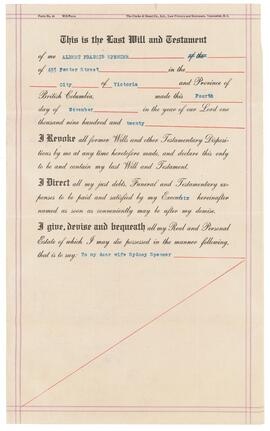 Form No. 41 Will Form The Clarke & Stuart Co., Ltd., Law Printers and Stationers, Vancouver, B.C.
This is the Last Will and Testament
of me ALBERT FRANCIS SPENCER of the
of Street in the
City of Victoria and Province of
British Columbia, made this Fourth
day of November in the year of our Lord one
thousand nine hundred and twenty
I Revoke all former Wills and other Testamentary Disposi-
tions by me at any time heretofore made, and declare this only
to be and contain my last Will and Testament.
I Direct all my just debts, Funeral and Testamentary ex-
penses to be paid and satisfied by my Executrix hereinafter
named as soon as conveniently may be after my demise.
I give, devise and bequeath all my Real and Personal
Estate of which I may die possessed in the manner following,
that is to say: To my dear wife Sydney Spencer